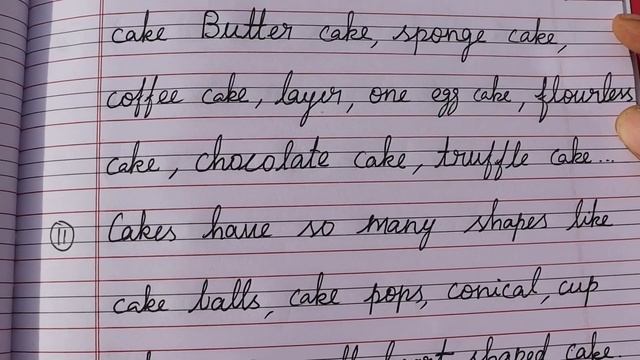 cake Butter cake, sponge cake,
coffee cake, layer, one egg cake, flourless
cake, chocolate cake, truffle cake...
11 Cakes have so many shapes like
cake balls, cake pops, conical, cup
shaped cake.